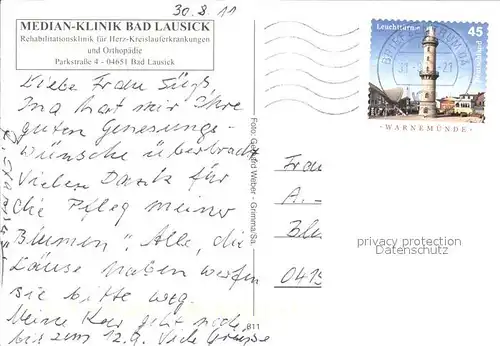 30.8.11
MEDIAN-KLINIK BAD LAUSICK
Rehabilitationsklinik für Herz-Kreislauferkrankungen
und Orthopädie
Parkstraße 4 - 04651 Bad Lausick
Liebe Frau Süß,
Ina hat mir Ihre
guten Genesungs-
wünsche überbracht
Vielen Dank für
die Pfleg meiner
Blumen". Alle, die
Läuse haben werfen
Sie bitte weg.
Meine Kur geht noch
bis zum 12.9. Viele Grüsse
Foto: Gerhard Weber - Grimma/Sa.
B11
Leuchttürme
45
WARNEMÜNDE
Frau
A.-
Blu
0415
privacy protection
Datenschutz